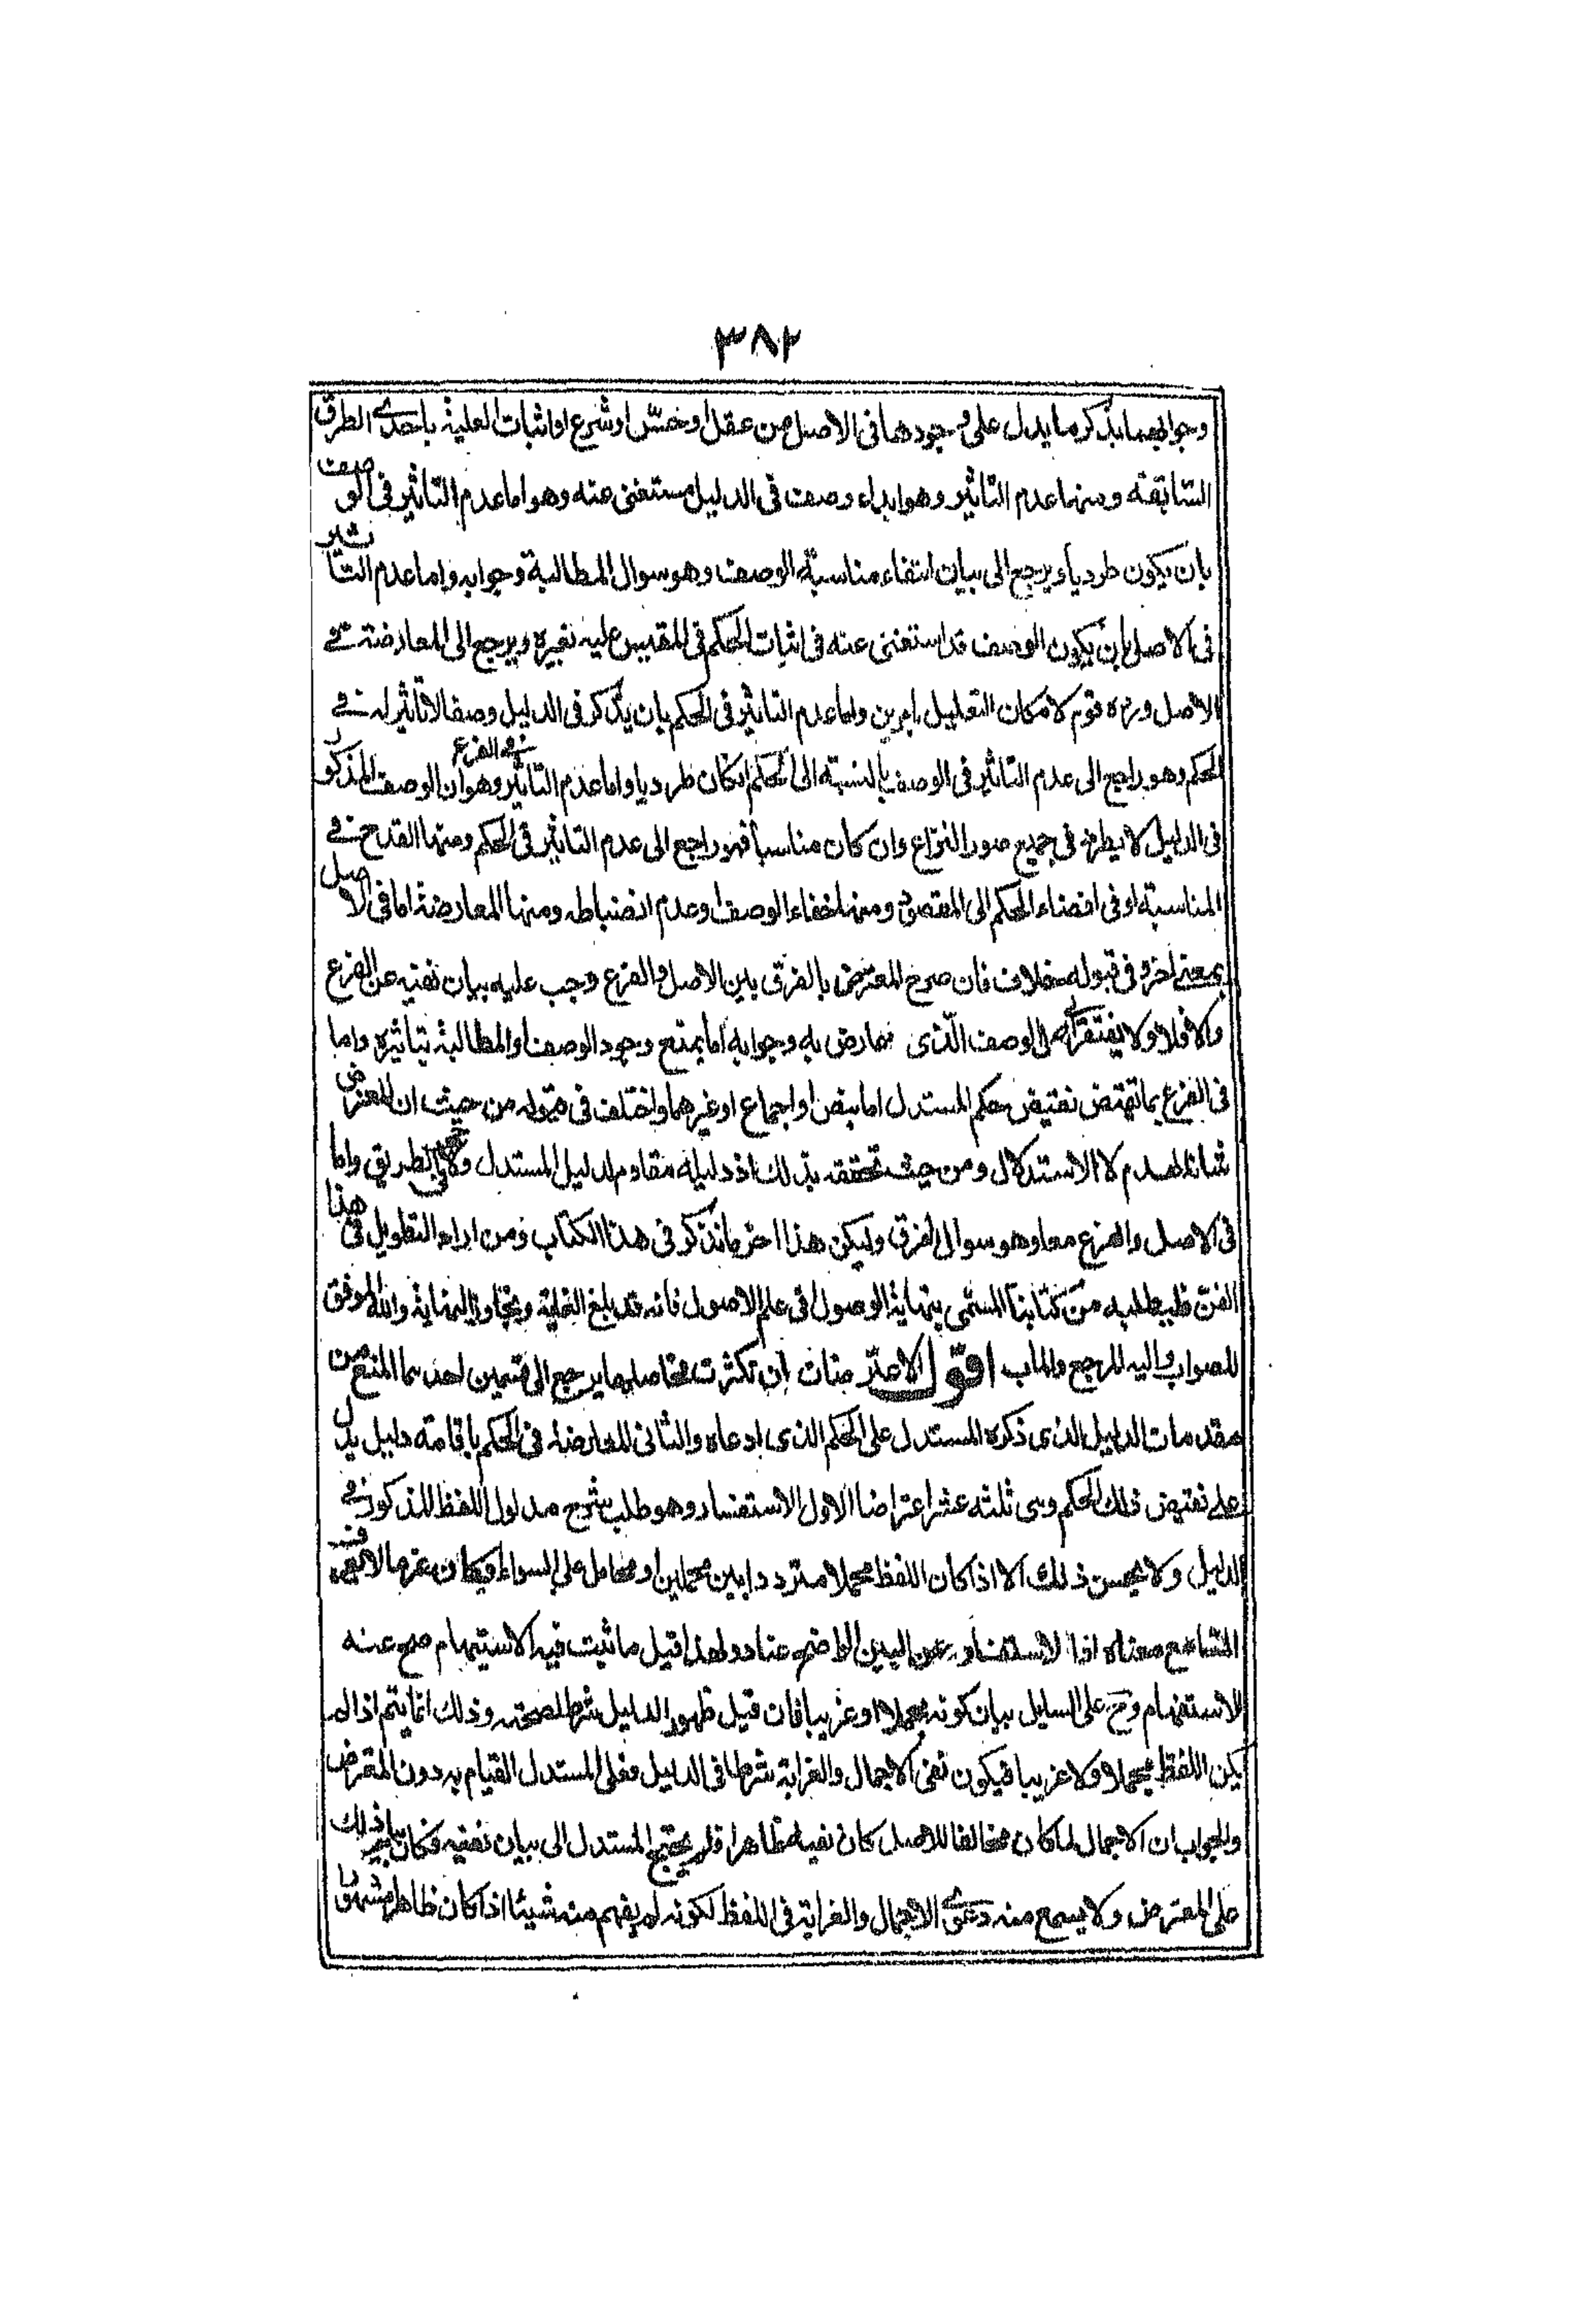 ٣٨٢
وجوابهما بذكر ما يدل على وجودهما فى الاصل من عقل او حسّ او شرع او اثبات العلية باحدى الطرق
السّابقة ومنها عدم التاثير وهو ابداء وصف فى الدليل مستغنى عنه وهو اما عدم التاثير فى الوصف
بان يكون طرديا ويرجع الى بيان انتفاء مناسبة الوصف وهو سوال المطالبة وجوابه واما عدم التاثير
فى الاصل بان يكون الوصف قد استغنى عنه فى اثبات الحكم فى المقيس عليه بغيره ويرجع الى المعارضة فى
الاصل ورده قوم لامكان التعليل بامرين واما عدم التاثير فى الحكم بان يذكر فى الدليل وصفا لا تاثير له فى
الحكم وهو راجع الى عدم التاثير فى الوصف بالنسبة الى الحكم ان كان طرديا واما عدم التاثير فى الفرع وهو ان الوصف المذكور
فى الدليل لا يطرد فى جميع صور النزاع وان كان مناسبا فهو راجع الى عدم التاثير فى الحكم ومنها القدح فى
المناسبة او فى افضاء الحكم الى المقصود ومنها خفاء الوصف او عدم انضباطه ومنها المعارضة اما فى الاصل
بمعنى اخر وفى قبوله خلاف فان صرح المعترض بالفرق بين الاصل والفرع وجب عليه بيان نفيه عن الفرع
والا فلا ولا يفتقر الى الوصف الّذى عارض به وجوابه اما بمنع وجود الوصف او المطالبة بتاثيره واما
فى الفرع بما يقتضى نقيض حكم المستدل اما بنص او اجماع او غيرهما واختلف فى قبوله من حيث ان المعترض
شانه الهدم لا الاستدلال ومن حيث تحققه بذلك اذ دليله مقاوم لدليل المستدل الطريق واما
فى الاصل والفرع معا وهو سوال الفرق وليكن هذا اخر ما نذكر فى هذا الكتاب ومن اراد التطويل فى هذا
الفنّ فليطلبه من كتابنا المسّمى بنهاية الوصول فى علم الاصول فانه قد بلغ الغاية وتجاوز النهاية والله الموفق
للصواب واليه المرجع والماب اقول الاعتراضات ان تكثرت فحاصلها يرجع الى قسمين احدهما المنع من
مقدمات الدليل الذى ذكره المستدل على الحكم الذى ادعاه والثانى المعارضة فى الحكم باقامة دليل يدل
على نقيض ذلك الحكم وهى ثلثة عشر اعتراضا الاول الاستفسار وهو طلب شرح مدلول اللفظ المذكور فى
الدليل ولا يحسن ذلك الا اذا كان اللفظ مجملا مترددا بين محملين او محامل على السواء او كان غريبا لا يعرف
السامع معناه اذ الاستفسار عن البين الواضح عناد ولهذا قيل ما ثبت فيه الاستبهام صح عنه
الاستفهام و على السايل بيان كونه مجملا او غريبا فان قيل ظهور الدليل شرط لصحته وذلك انما يتم اذا لم
يكن اللفظ مجملا ولا غريبا فيكون نفى الاجمال والغرابة شرطا فى الدليل فعلى المستدل القيام به دون المعترض
والجواب ان الاجمال لما كان مخالفا للاصل كان نفيه ظاهرا فلم يحتج المستدل الى بيان نفيه فكان بيان ذلك
على المعترض ولا يسمع منه دعوى الاجمال والغرابة فى اللفظ لكونه لم يفهم منه شيئا اذا كان ظاهرا مشهورا